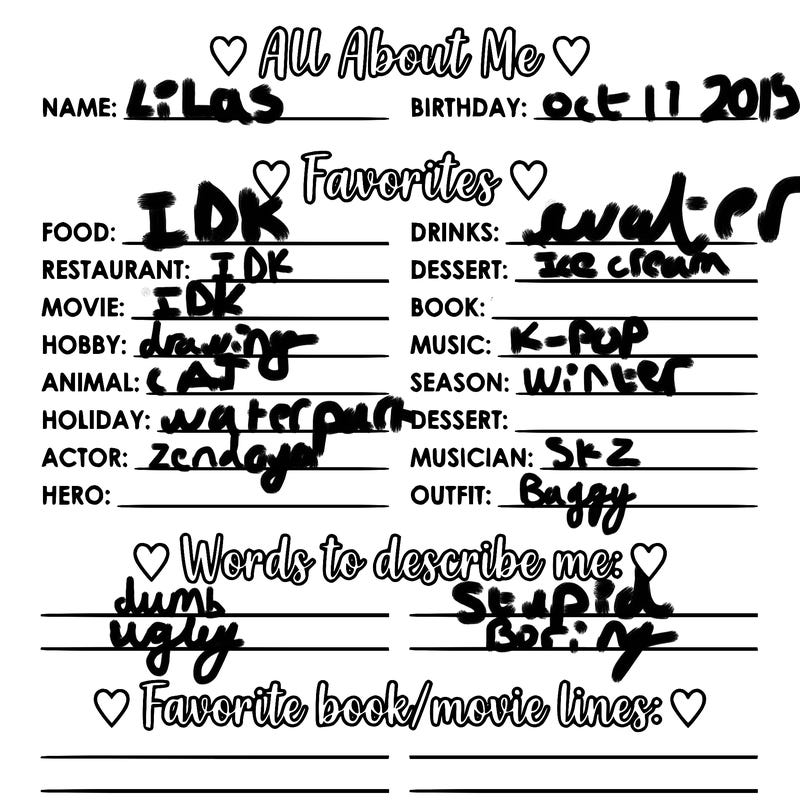 All About Me
NAME: LiLas BIRTHDAY: oct 11 2015
Favorites
FOOD: IDK DRINKS: water
RESTAURANT: IDK DESSERT: Ice cream
MOVIE: IDK BOOK:
HOBBY: drawing MUSIC: K-POP
ANIMAL: CAT SEASON: Winter
HOLIDAY: waterpark DESSERT:
ACTOR: Zendaya MUSICIAN: SKZ
HERO: OUTFIT: Baggy
Words to describe me:
dumb Stupid
ugly Boring
Favorite book/movie lines: